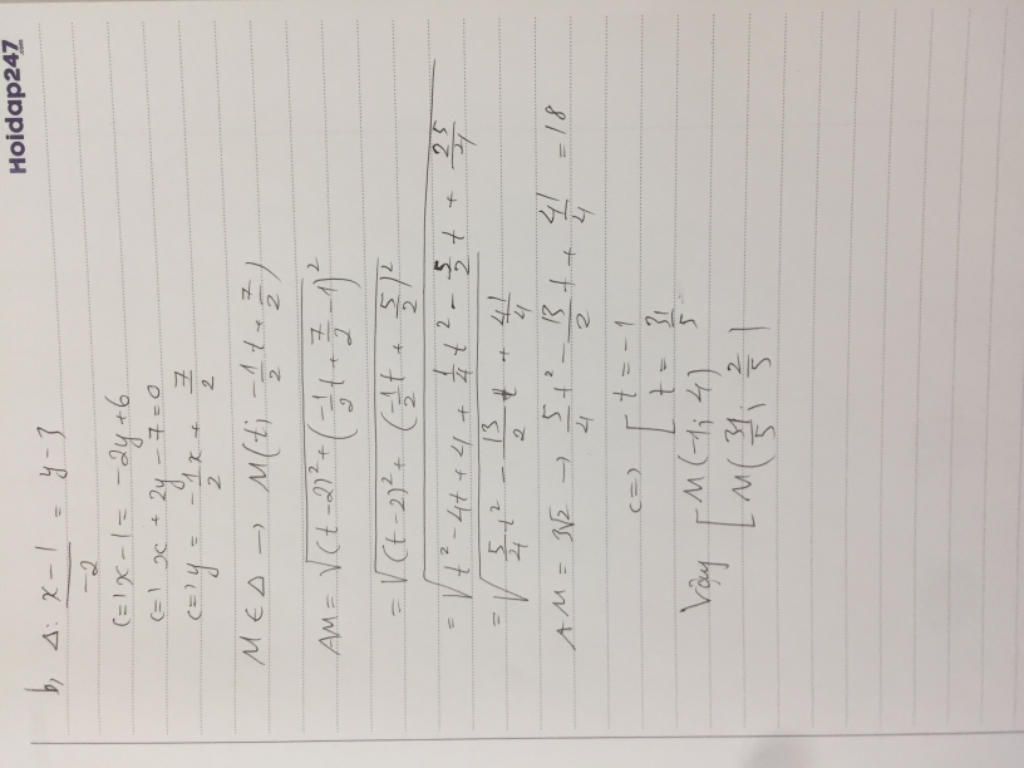 Hoidap247
b, Δ: x-1/-2 = y-3
(=) x-1 = -2y+6
(=) x + 2y - 7 = 0
(=) y = -1/2 x + 7/2
M ∈ Δ → M(t; -1/2 t + 7/2)
AM = √((t-2)² + (-1/2 t + 7/2 - 1)²)
= √((t-2)² + (-1/2 t + 5/2)²)
= √(t² - 4t + 4 + 1/4 t² - 5/2 t + 25/4)
= √(5/4 t² - 13/2 t + 41/4)
AM = 3√2 → 5/4 t² - 13/2 t + 41/4 = 18
(=) [ t = -1
t = 31/5
Vậy [ M(-1; 4)
[ M(31/5; 2/5)